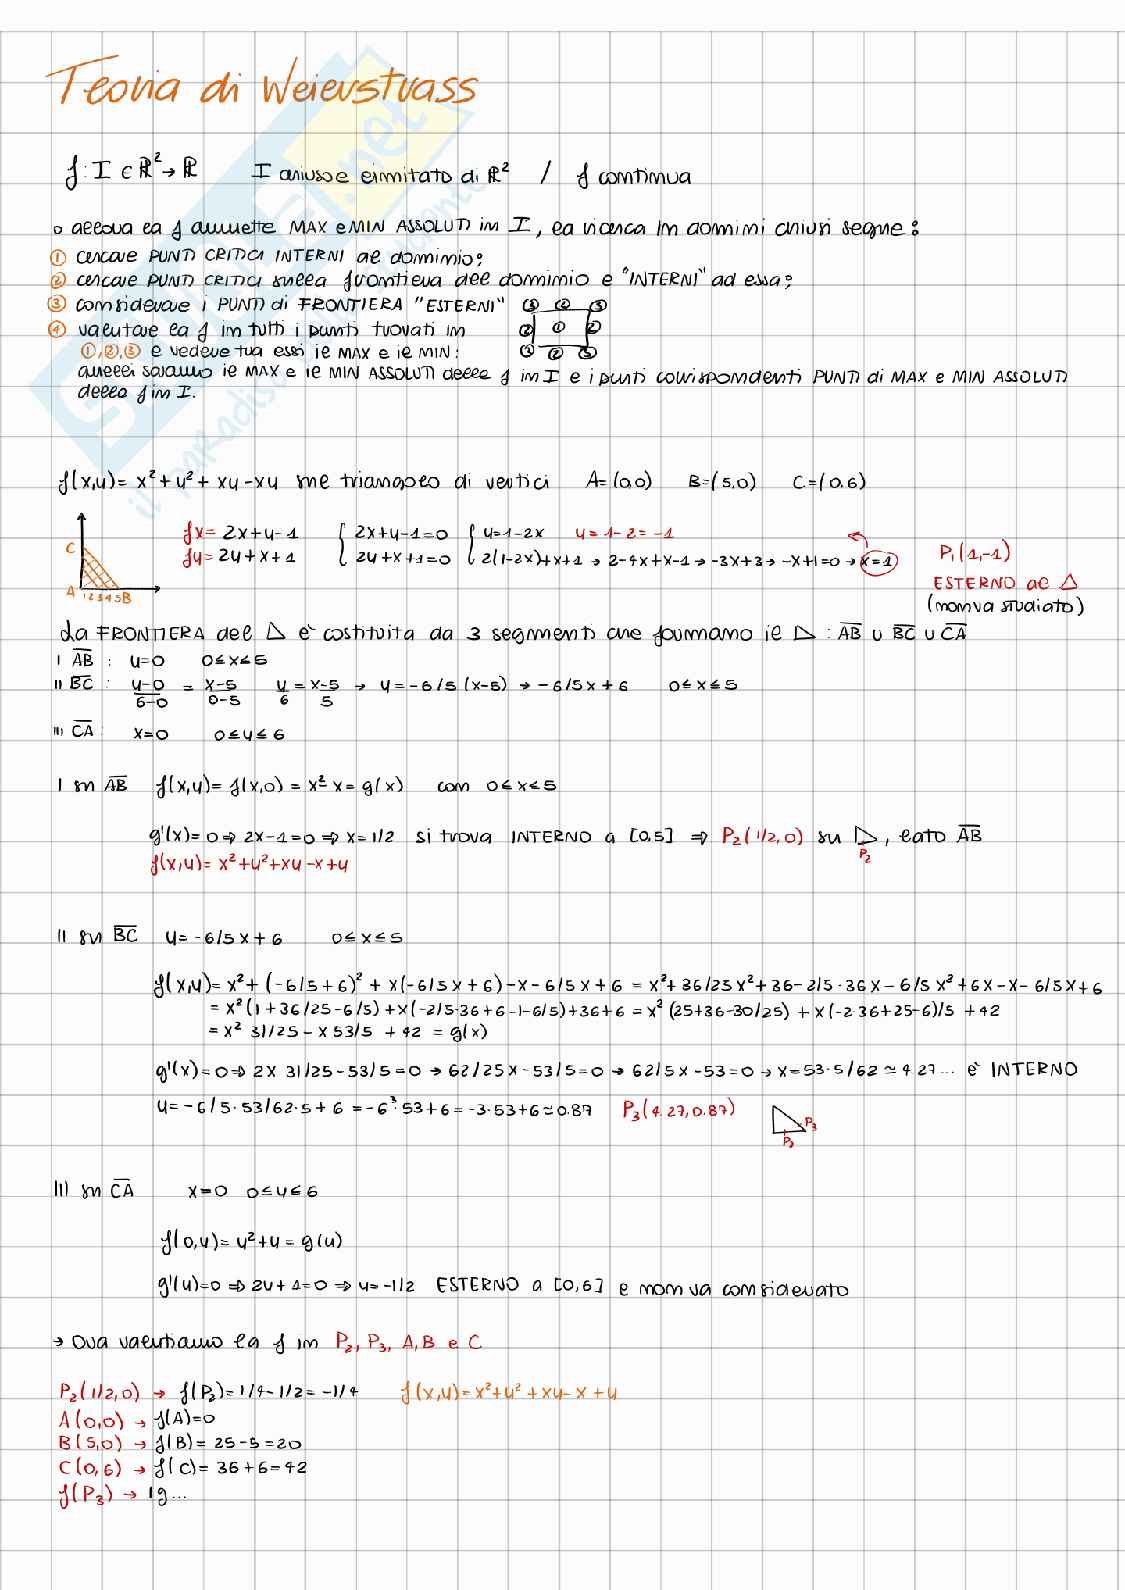 Teoria di Weierstrass
f: I ⊂ ℝ² → ℝ I chiuso e limitato di ℝ² / f continua
o allora la f ammette MAX e MIN ASSOLUTI in I, la ricerca in domini chiusi segue:
① cercare PUNTI CRITICI INTERNI al dominio;
② cercare PUNTI CRITICI sulla frontiera del dominio e "INTERNI" ad essa;
③ considerare i PUNTI di FRONTIERA "ESTERNI" ③ ② ③
④ valutare la f in tutti i punti trovati in ② ① ②
①,②,③ e vedere tra essi il MAX e il MIN: ③ ② ③
quelli saranno il MAX e il MIN ASSOLUTI della f in I e i punti corrispondenti PUNTI di MAX e MIN ASSOLUTI
della f in I.
f(x,y) = x² + y² + xy - xy nel triangolo di vertici A=(0,0) B=(5,0) C=(0,6)
C
fx= 2x+y-1 { 2x+y-1=0 { y=1-2x y=1-2=-1
fy= 2y+x+1 { 2y+x+1=0 { 2(1-2x)+x+1 → 2-4x+x-1 → -3x+3 → -x+1=0 → x=1 P₁(1,-1)
A 1 2 3 4 5 B
ESTERNO al △
(non va studiato)
La FRONTIERA del △ è costituita da 3 segmenti che formano il △ : AB ∪ BC ∪ CA
I AB : y=0 0≤x≤5
II BC : y-0/6-0 = x-5/0-5 y/6 = x-5/5 → y=-6/5(x-5) → -6/5x+6 0≤x≤5
III CA : x=0 0≤y≤6
I su AB f(x,y)= f(x,0) = x²-x= g(x) con 0≤x≤5
g'(x)=0 ⇒ 2x-1=0 ⇒ x=1/2 si trova INTERNO a [0,5] ⇒ P₂(1/2,0) su △, lato AB
P₂
f(x,y)= x²+y²+xy-x+y
II su BC y= -6/5x+6 0≤x≤5
f(x,y)= x²+(-6/5+6)² + x(-6/5x+6)-x-6/5x+6 = x²+36/25x²+36-2/5·36x-6/5x²+6x-x-6/5x+6
= x²(1+36/25-6/5)+x(-2/5·36+6-1-6/5)+36+6= x²(25+36-30/25) +x(-2·36+25-6)/5 +42
= x² 31/25 - x 53/5 +42 = g(x)
g'(x)=0 ⇒ 2x 31/25-53/5=0 → 62/25x-53/5=0 → 62/5x-53=0 → x=53·5/62 ≃ 4.27... è INTERNO
y=-6/5·53/62·5+6 = -6³·53+6 = -3·53+6 ≃ 0.87 P₃(4.27,0.87)
P₃
P₂
III su CA x=0 0≤y≤6
f(0,y)= y²+y = g(y)
g'(y)=0 ⇒ 2y+1=0 ⇒ y=-1/2 ESTERNO a [0,6] e non va considerato
→ Ora valutiamo la f in P₂, P₃, A, B e C
P₂(1/2,0) → f(P₂)=1/4-1/2=-1/4 f(x,y)=x²+y²+xy-x+y
A(0,0) → f(A)=0
B(5,0) → f(B)= 25-5=20
C(0,6) → f(C)= 36+6=42
f(P₃) → 19...